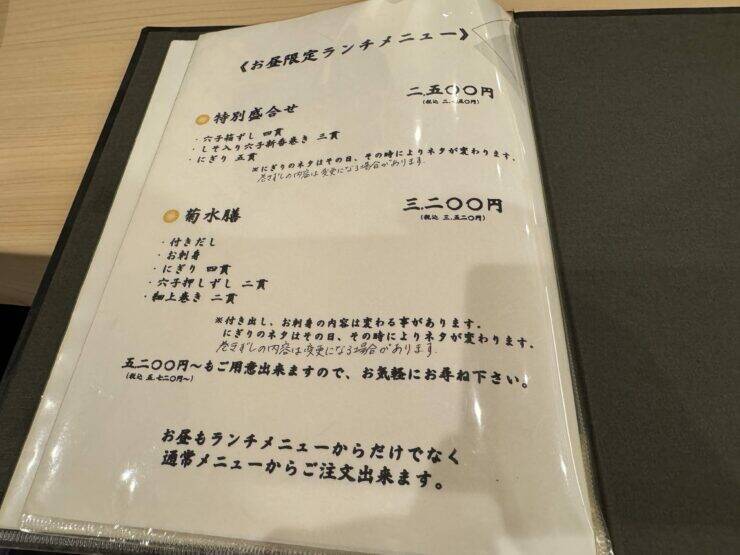 《お昼限定ランチメニュー》
二,五〇〇円
(税込 二,七五〇円)
特別盛合せ
・穴子箱ずし 四貫
・しそ入り穴子新香巻き 三貫
・にぎり 五貫
※にぎりのネタはその日、その時によりネタが変わります。
巻きずしの内容は変更になる場合があります。
三,二〇〇円
(税込 三,五二〇円)
菊水膳
・付きだし
・お刺身
・にぎり 四貫
・穴子押しずし 二貫
・細上巻き 二貫
※付き出し、お刺身の内容は変わる事があります。
にぎりのネタはその日、その時によりネタが変わります。
巻きずしの内容は変更になる場合があります。
五,二〇〇円～もご用意出来ますので、お気軽にお尋ね下さい。
(税込 五,七二〇円～)
お昼もランチメニューからだけでなく
通常メニューからご注文出来ます。